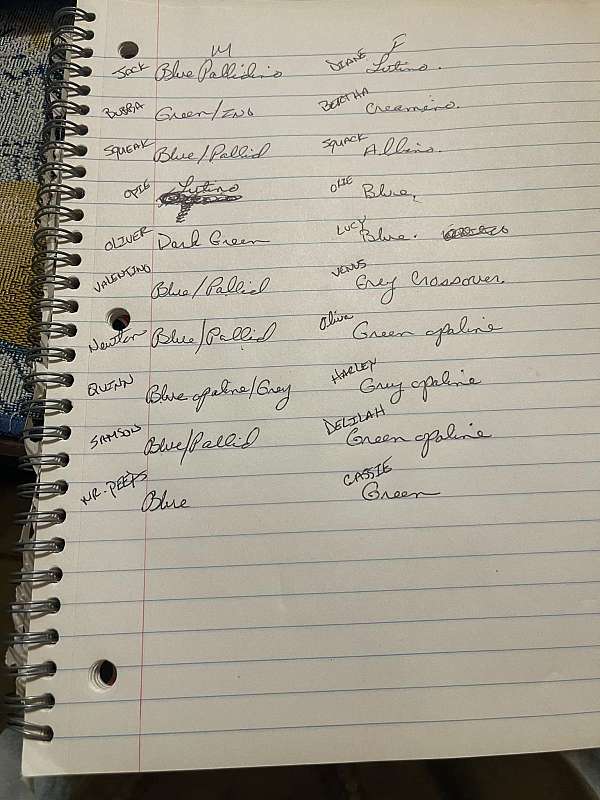 M F
JACK Blue Pallidino DIANE Lutino.
BUBBA Green/INO BERTHA Creamino.
SQUEAK Blue/Pallid SQUACK Albino.
OPIE Lutino OLIE Blue.
OLIVER Dark Green LUCY Blue.
VALENTINO Blue/Pallid VENUS Grey Crossover.
Newton Blue/Pallid Oliva Green opaline
QUINN Blue opaline/Grey HARLEY Grey opaline
SAMSON Blue/Pallid DELILAH Green opaline
MR. PEEPS Blue CASSIE Green